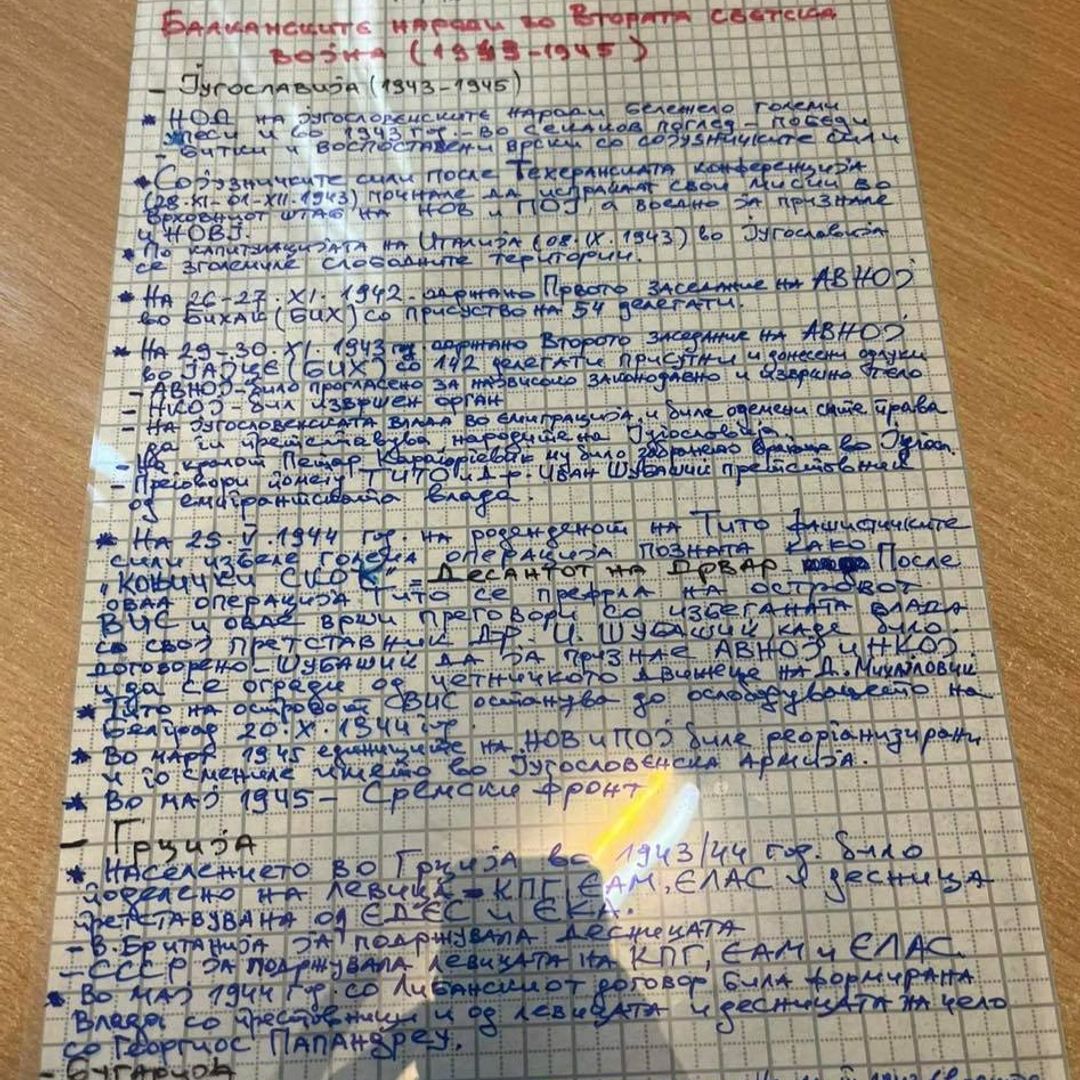 Балканските народи во Втората светска
војна (1943-1945)
- Југославија (1943-1945)
* НОД на југословенските народи бележело големи
успеси и во 1943 год. - во секаков поглед - победи
- битки и воспоставени врски со сојузничките сили
* Сојузничките сили после Техеранската конференција
(28-XI-01-XII-1943) почнале да испраќаат свои мисии во
Врховниот штаб на НОВ и ПОЈ а воедно ја признале
и НОВЈ.
* По капитулацијата на Италија (08.IX.1943) во Југославија
се зголемиле слободните територии.
* На 26-27.XI.1942 одржано Првото заседание на АВНОЈ
во Бихаќ (БИХ) со присуство на 54 делегати.
* На 29-30.XI.1943 одржано Второто заседание на АВНОЈ
во Јајце (БИХ) со 142 делегати присутни и донесени одлуки
- АВНОЈ-било прогласено за највисоко законодавно и извршно тело
- НКОЈ-бил извршен орган
- На југословенската влада во емиграција и биле одземени сите права
да ги претставува народите на Југославија
- На кралот Петар Караѓорѓевиќ му било забрането враќање во Југосл.
- Преговори помеѓу ТИТО и д-р. Иван Шубашиќ претставник
од емигрантската влада.
* На 25.V.1944 год. на роденденот на Тито фашистичките
сили извеле голема операција позната како
„Коњички скок" - Десантот на Дрвар После
оваа операција Тито се префрла на островот
ВИС и овде врши преговори со избеганата влада
со својот претставник Д-р. И. Шубашиќ каде било
договорено - Шубашиќ да ја признае АВНОЈ и НКОЈ
и да се огради од четничкото движење на Д. Михаиловиќ
* Тито на островот ВИС останува до ослободувањето на
Белград 20.X.1944 год.
* Во март 1945 единиците на НОВ и ПОЈ биле реорганизирани
и го смениле името во Југословенска армија.
* Во мај 1945 - Сремски фронт
- Грција
* Населението во Грција во 1943/44 год. било
поделено на левица - КПГ, ЕАМ, ЕЛАС и десница
претставувана од ЕДЕС и ЕКА.
- В. Британија ја подржувала десницата
- СССР ја подржувала левицата на КПГ, ЕАМ и ЕЛАС.
* Во мај 1944 год. со Либанскиот договор била формирана
Влада со претставници и од левицата и десницата на чело
со Георгиос Папандреу.
- Бугарија